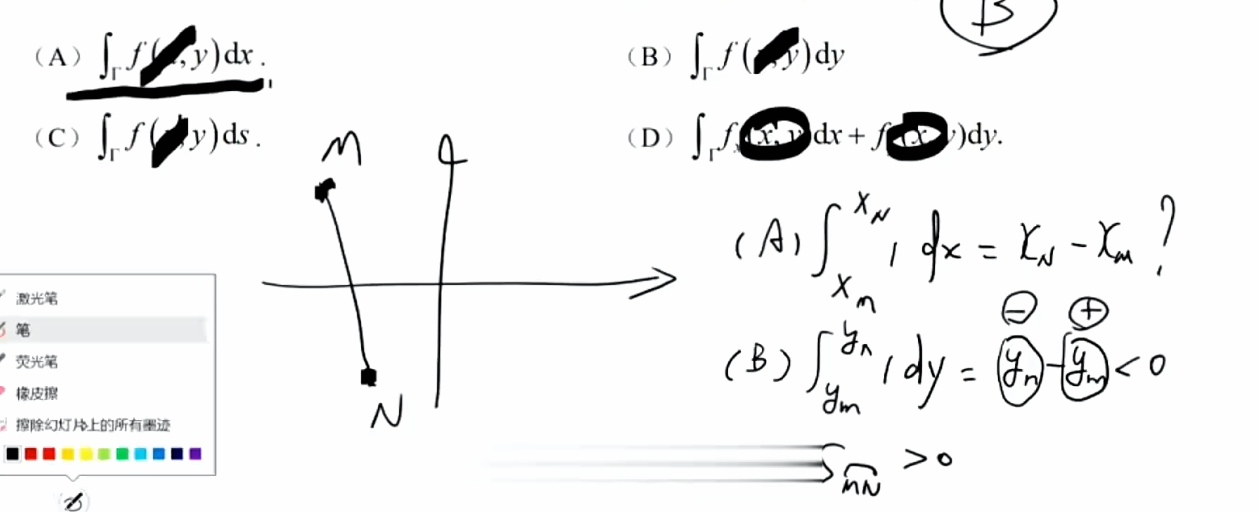 B
(A) ∫_Γ f( , y)dx.
(B) ∫_Γ f( , y)dy
(C) ∫_Γ f( , y)ds.
(D) ∫_Γ f (x, y dx + f (x y)dy.
M
N
(A) ∫_{x_m}^{x_N} 1 dx = x_N - x_m ?
⊖ ⊕
(B) ∫_{y_m}^{y_n} 1 dy = y_n - y_m < 0
MN > 0
激光笔
笔
荧光笔
橡皮擦
擦除幻灯片上的所有墨迹